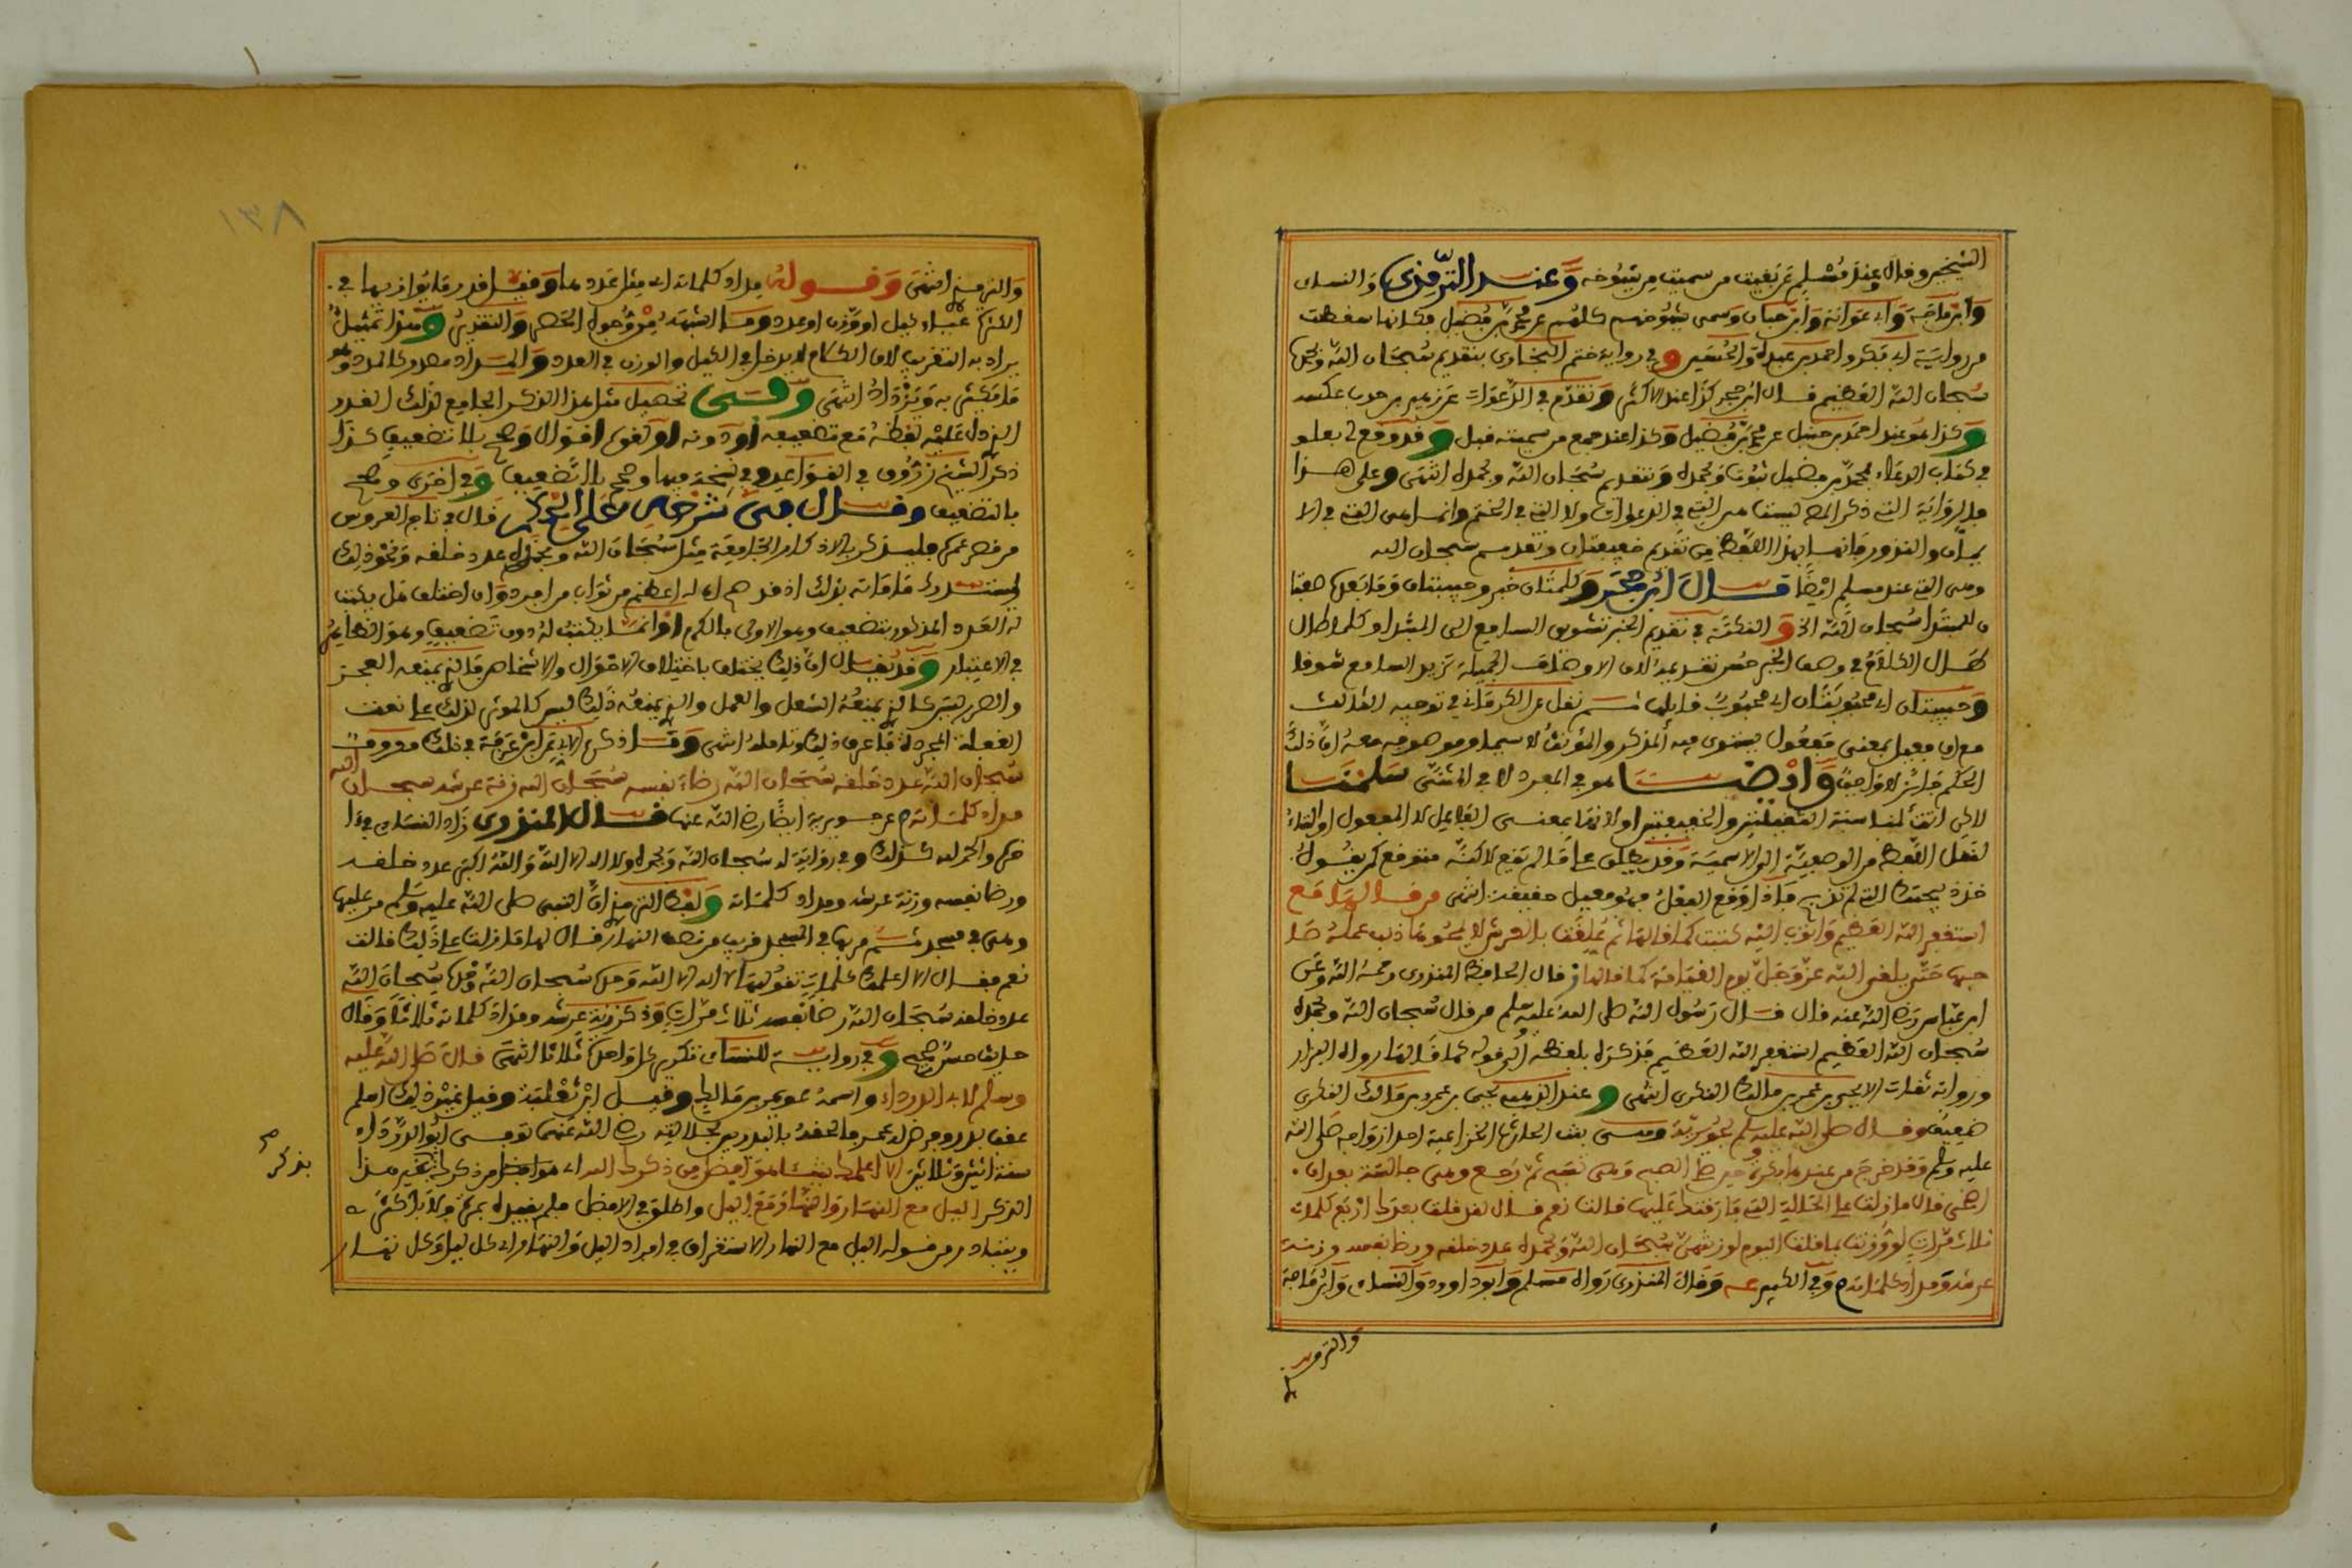 الشيخين وقال عند مسلم عن بقيت من سميت من شيوخه وعند الترمذي والنساى
وابن ماجة وابي عوانة وابن حبان وسمى شيوخهم كلهم عن محمد بن فضيل فكانها سقطت
من رواية ابي بكر واحمد بن عبدة والحسين وفي رواية ختم البخاري بتقديم سبحان الله وبحمده
سبحان الله العظيم قال ابن حجر كذا عند الاكثر وتقدم في الدعوات عن زهير بن حرب عكسه
وكذا هو عند احمد بن حنبل عن محمد بن فضيل وكذا عند جمع من سميته قبل وقد وقع لي بعلو
في كتاب الدعاء لمحمد بن فضيل ثبوت وبحمده وتقديم سبحان الله وبحمده انتهى وعلى هذا
فالرواية التي ذكر المص ليست هي التي في الدعوات ولا التي في الختم وانما هي التي في الا
يمان والنذور فانها بهذا اللفظ من تقديم خفيفتان وتقديم سبحان الله
وهي التي عند مسلم ايضا قال ابن حجر وكلمتان خبر وحبيبتان وما بعدها صفة
والنكتة في تقديم الخبر تشويق السامع الى المبتدا وكلما طال
الكلام في وصف الخبر حسن تقديمه لان الاوصاف الجميلة تزيد السامع شوقا
وحبيبتان اي محبوبتان اي محبوب قايلهما ثم نقل عن الكرماني في توجيه التانيث
مع ان فعيل بمعنى مفعول يستوي فيه المذكر والمؤنث لا سيما وموصوفه معه ان ذلك
الحكم جائز لا واجب وايضا هو في المفرد لا في المثنى سلمنا
لاكن انث لمناسبة الثقيلتين والخفيفتين او لانها بمعنى الفاعل لا المفعول او التاء
لنقل اللفظ من الوصفية الى الاسمية وقد يطلق على ما لم يقع لاكنه متوقع كمن يقول
خذ ذبيحتك التي لم تذبح فاذا وقع الفعل فهو فعيل حقيقة انتهى من قالها مع
استغفر الله العظيم واتوب اليه كتبت كما قالها ثم علقت بالعرش لا يمحوها ذنب عمله صا
حبها حتى يلقى الله عز وجل يوم القيامة كما قالها ز قال الحافظ المنذري رحمه الله وعن
ابن عباس رضي الله عنه قال قال رسول الله صلى الله عليه وسلم من قال سبحان الله وبحمده
سبحان الله العظيم استغفر الله العظيم فذكره بلفظه الى قوله كما قالها رواه البزار
ورواته ثقات الا يحيى بن عمر بن مالك النكري انتهى وعند الذهبي يحيى بن عمرو بن مالك النكري
ضعيف وقال صلى الله عليه وسلم لجويرية وهي بنت الحارث الخزاعية احد ازواجه صلى الله
عليه وسلم وقد خرج من عندها بكرة حين صلى الصبح وهي تسبح ثم رجع وهي جالسة بعد ان
اضحى قال ما زلت على الحالة التي فارقتك عليها قالت نعم قال لقد قلت بعدك اربع كلمات
ثلاث مرات لو وزنت بما قلت اليوم لوزنتهن سبحان الله وبحمده عدد خلقه ورضا نفسه وزنة
عرشه ومداد كلماته م وفي الكبير عه وقال المنذري رواه مسلم وابو داوود والنساي وابن ماجة
والترمذي
١٣٨
والترمذي انتهى وقوله مداد كلماته اي مثل عددها وقيل قدر ما يوازيها في
الكثرة عيار كيل او وزن او عدد وما اشبهه من وجوه الحصر والتقدير وهذا تمثيل
يراد به التقريب لان الكلام لا يدخل في الكيل والوزن في العدد والمداد مصدر كالمدد وهو
ما يكثر به ويزداد انتهى وفي تحصيل مثل هذا الذكر الجامع لذلك القدر
الذي دل عليه لفظه مع تضعيفه او دونه او لغو اقوال وصح بلا تضعيف كذا
ذكر الشيخ زروق في القواعد وفي نسخة فيها وصح بالتضعيف وفي اخرى وصح
بالتضعيف وقال في شرحه على الحكم قال في تاج العروس
من قصر عمره فليذكر بالاذكار الجامعة مثل سبحان الله وبحمده عدد خلقه ونحو ذلك
ليستدرك ما فاته بذلك اذ قد صح ان له اعظم من ثواب من افرده وان اختلف هل يكتب
له العدد المذكور بتضعيف وهو الاولى بالكرم او انما يكتب له دون تضعيف وهو الظاهر
في الاعتبار وقد يقال ان ذلك يختلف باختلاف الاحوال والاشخاص فالذي يمنعه العجز
والضرر ليس كالذي يمنعه الشغل والعمل والذي يمنعه ذلك ليس كالمؤثر لذلك على نعت
الغفلة المجردة فاعرف ذلك وتامله انتهى وقد ذكر الابي عن ابن عرفة في ذلك
سبحان الله عدد خلقه سبحان الله رضاء نفسه سبحان الله زنة عرشه سبحان الله
مداد كلماته م عن جويرية ايضا رضي الله عنها قال المنذري زاد النساي في ا
خره والحمد لله كذلك وفي رواية له سبحان الله وبحمده ولا اله الا الله والله اكبر عدد خلقه
ورضا نفسه وزنة عرشه ومداد كلماته ولفظ الترمذي ان النبي صلى الله عليه وسلم مر عليها
وهي في مسجد ثم مر بها في المسجد قريب من نصف النهار فقال لها ما زلت على ذلك قالت
نعم فقال الا اعلمك كلمات تقولينها لا اله الا الله وحده سبحان الله وحده سبحان الله
عدد خلقه سبحان الله رضا نفسه ثلاث مرات وذكر زنة عرشه ومداد كلماته ثلاثا وقال
حديث حسن صحيح وفي رواية للنساى تكرير كل واحدة ثلاثا انتهى قال صلى الله عليه
وسلم لابي الدرداء واسمه عويمر بن مالك وقيل ابن ثعلبة وقيل غير ذلك اسلم
عقب بدر وفرض له عمر فالحقه بالبدريين لجلالته رضي الله عنهما توفى ابو الدرداء
سنة اثنين وثلاثين الا اعلمك شيئا هو افضل من ذكرك الله اي هو افضل من ذكرك بتخيير هذا
الذكر الليل مع النهار والنهار مع الليل واطلق في الافضل فلم يقيده بمرة ولا باكثر
ويتبادر من قوله الليل مع النهار الاستغراق في افراد الليل والنهار اي كل ليل وكل نهار
بذكر